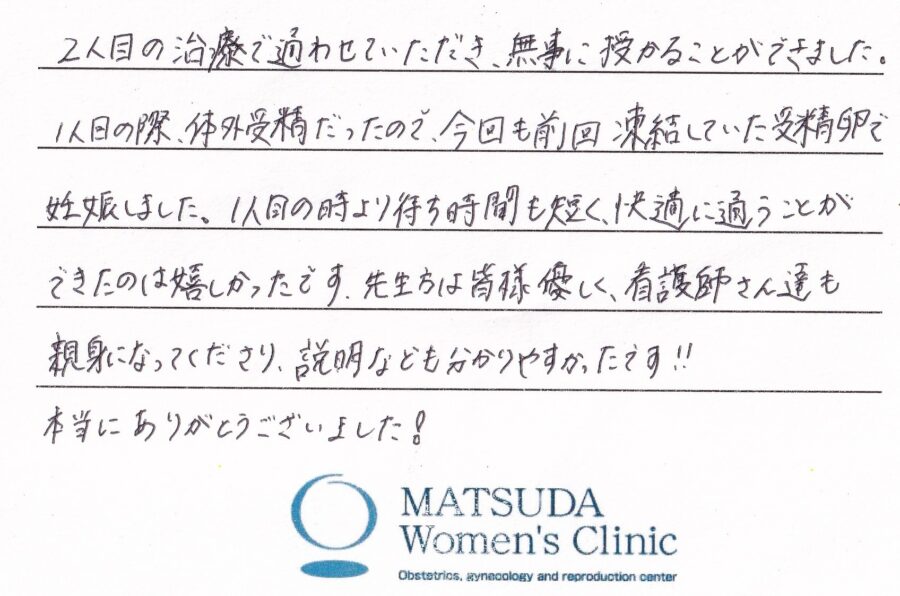 2人目の治療で通わせていただき、無事に授かることができました。
1人目の際、体外受精だったので、今回も前回凍結していた受精卵で
妊娠しました。1人目の時より待ち時間も短く、快適に通うことが
できたのは嬉しかったです。先生方は皆様優しく、看護師さん達も
親身になってくださり、説明なども分かりやすかったです!!
本当にありがとうございました!
MATSUDA
Women's Clinic
Obstetrics, gynecology and reproduction center